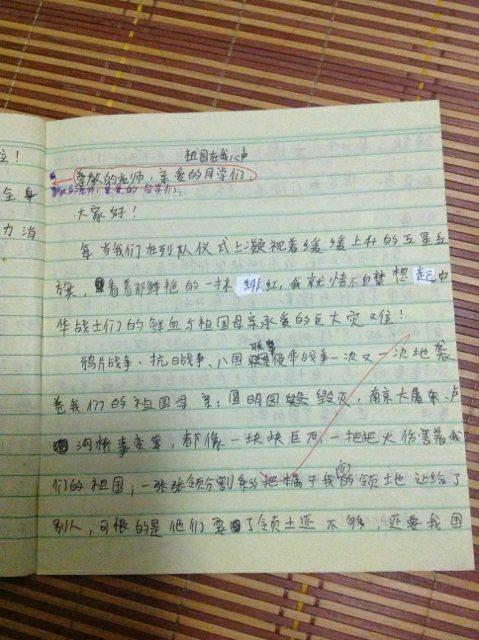 位！
全身
力消
祖国在我心中
尊敬的老师，亲爱的同学们，
大家好！
每当我们在列队仪式上凝视着缓缓上升的五星红
旗，看着那鲜艳的一抹绯红，我就情不自禁想起中
华战士们的鲜血与祖国母亲承爱的巨大灾难！
鸦片战争、抗日战争、八国联军侵华战争一次又一次地袭
卷我们的祖国母亲；圆明园毁灭，南京大屠杀、卢
沟桥事变等，都像一块块巨石，一把把火伤害着我
们的祖国；一张张领分割条约把属于我们的领土地让给了
别人，可恨的是他们要了领土还不够，还要我国